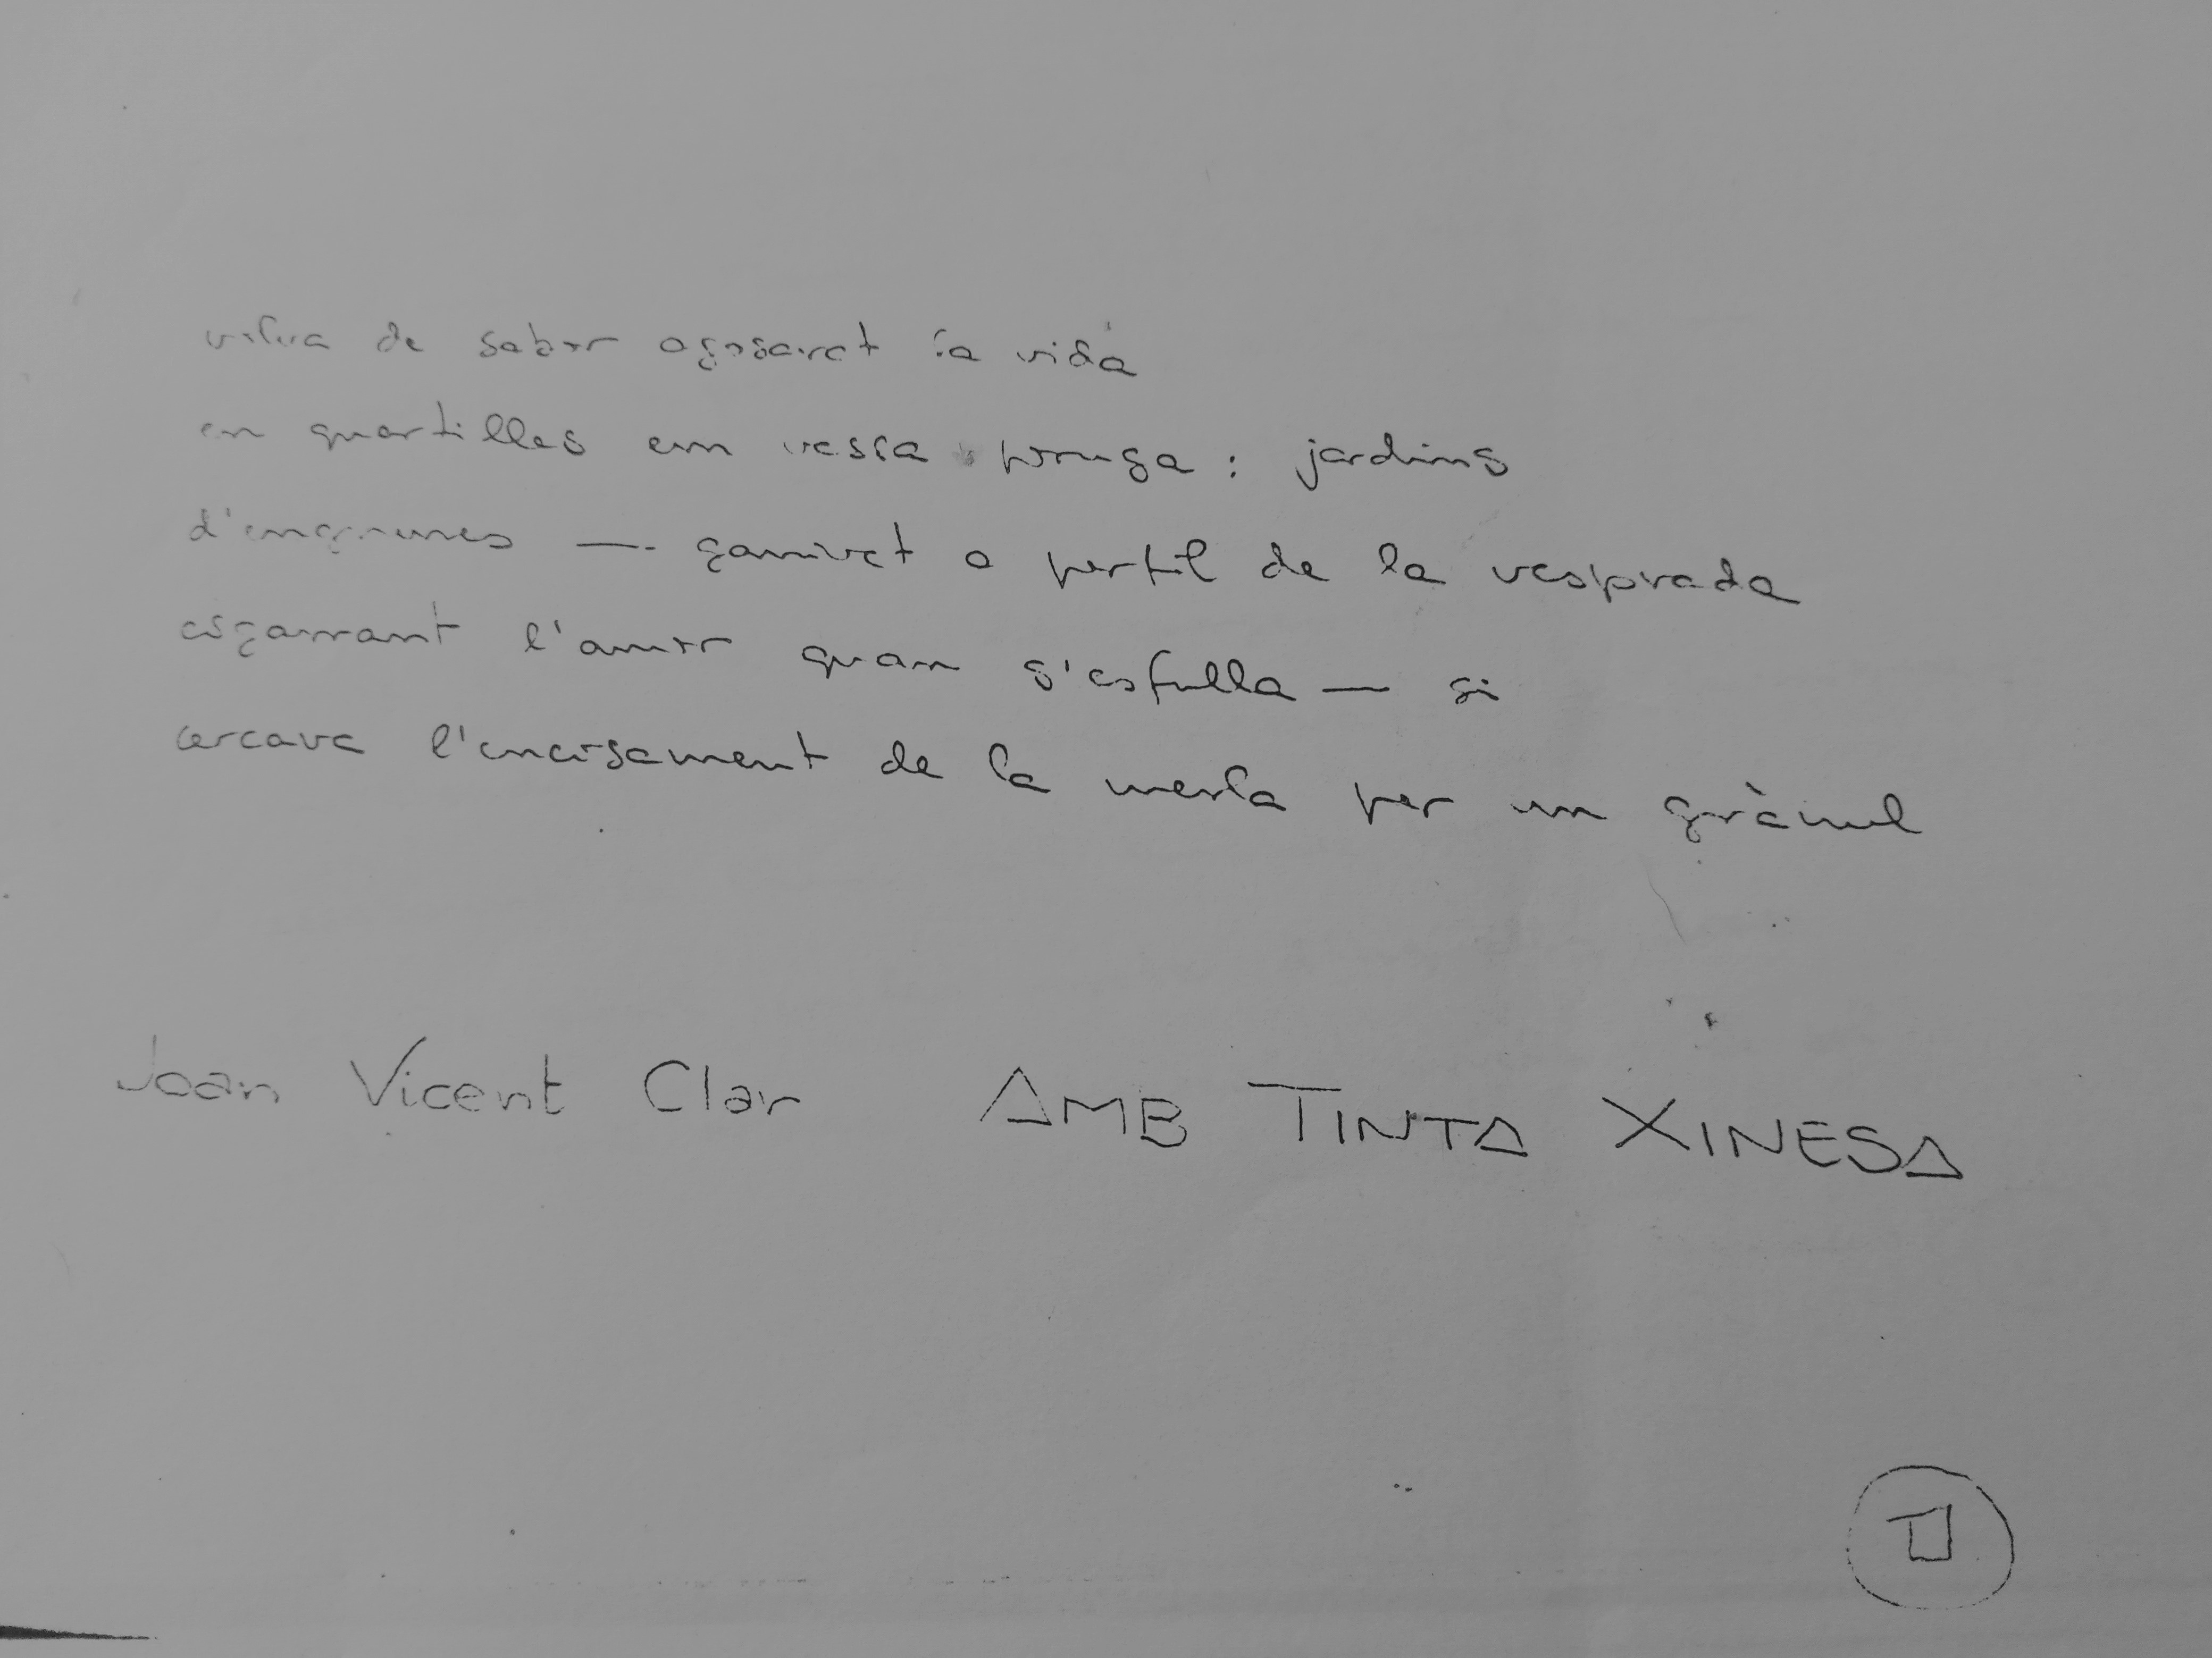 de sabor agosaret la vida
en quartilles em vessa poruga : jardins
d'engrunes — ganivet a perfil de la vesprada
esgarrant l'amor quan s'esfulla — si
cercava l'encisament de la merla per un grànul
Joan Vicent Clar AMB TINTA XINESA